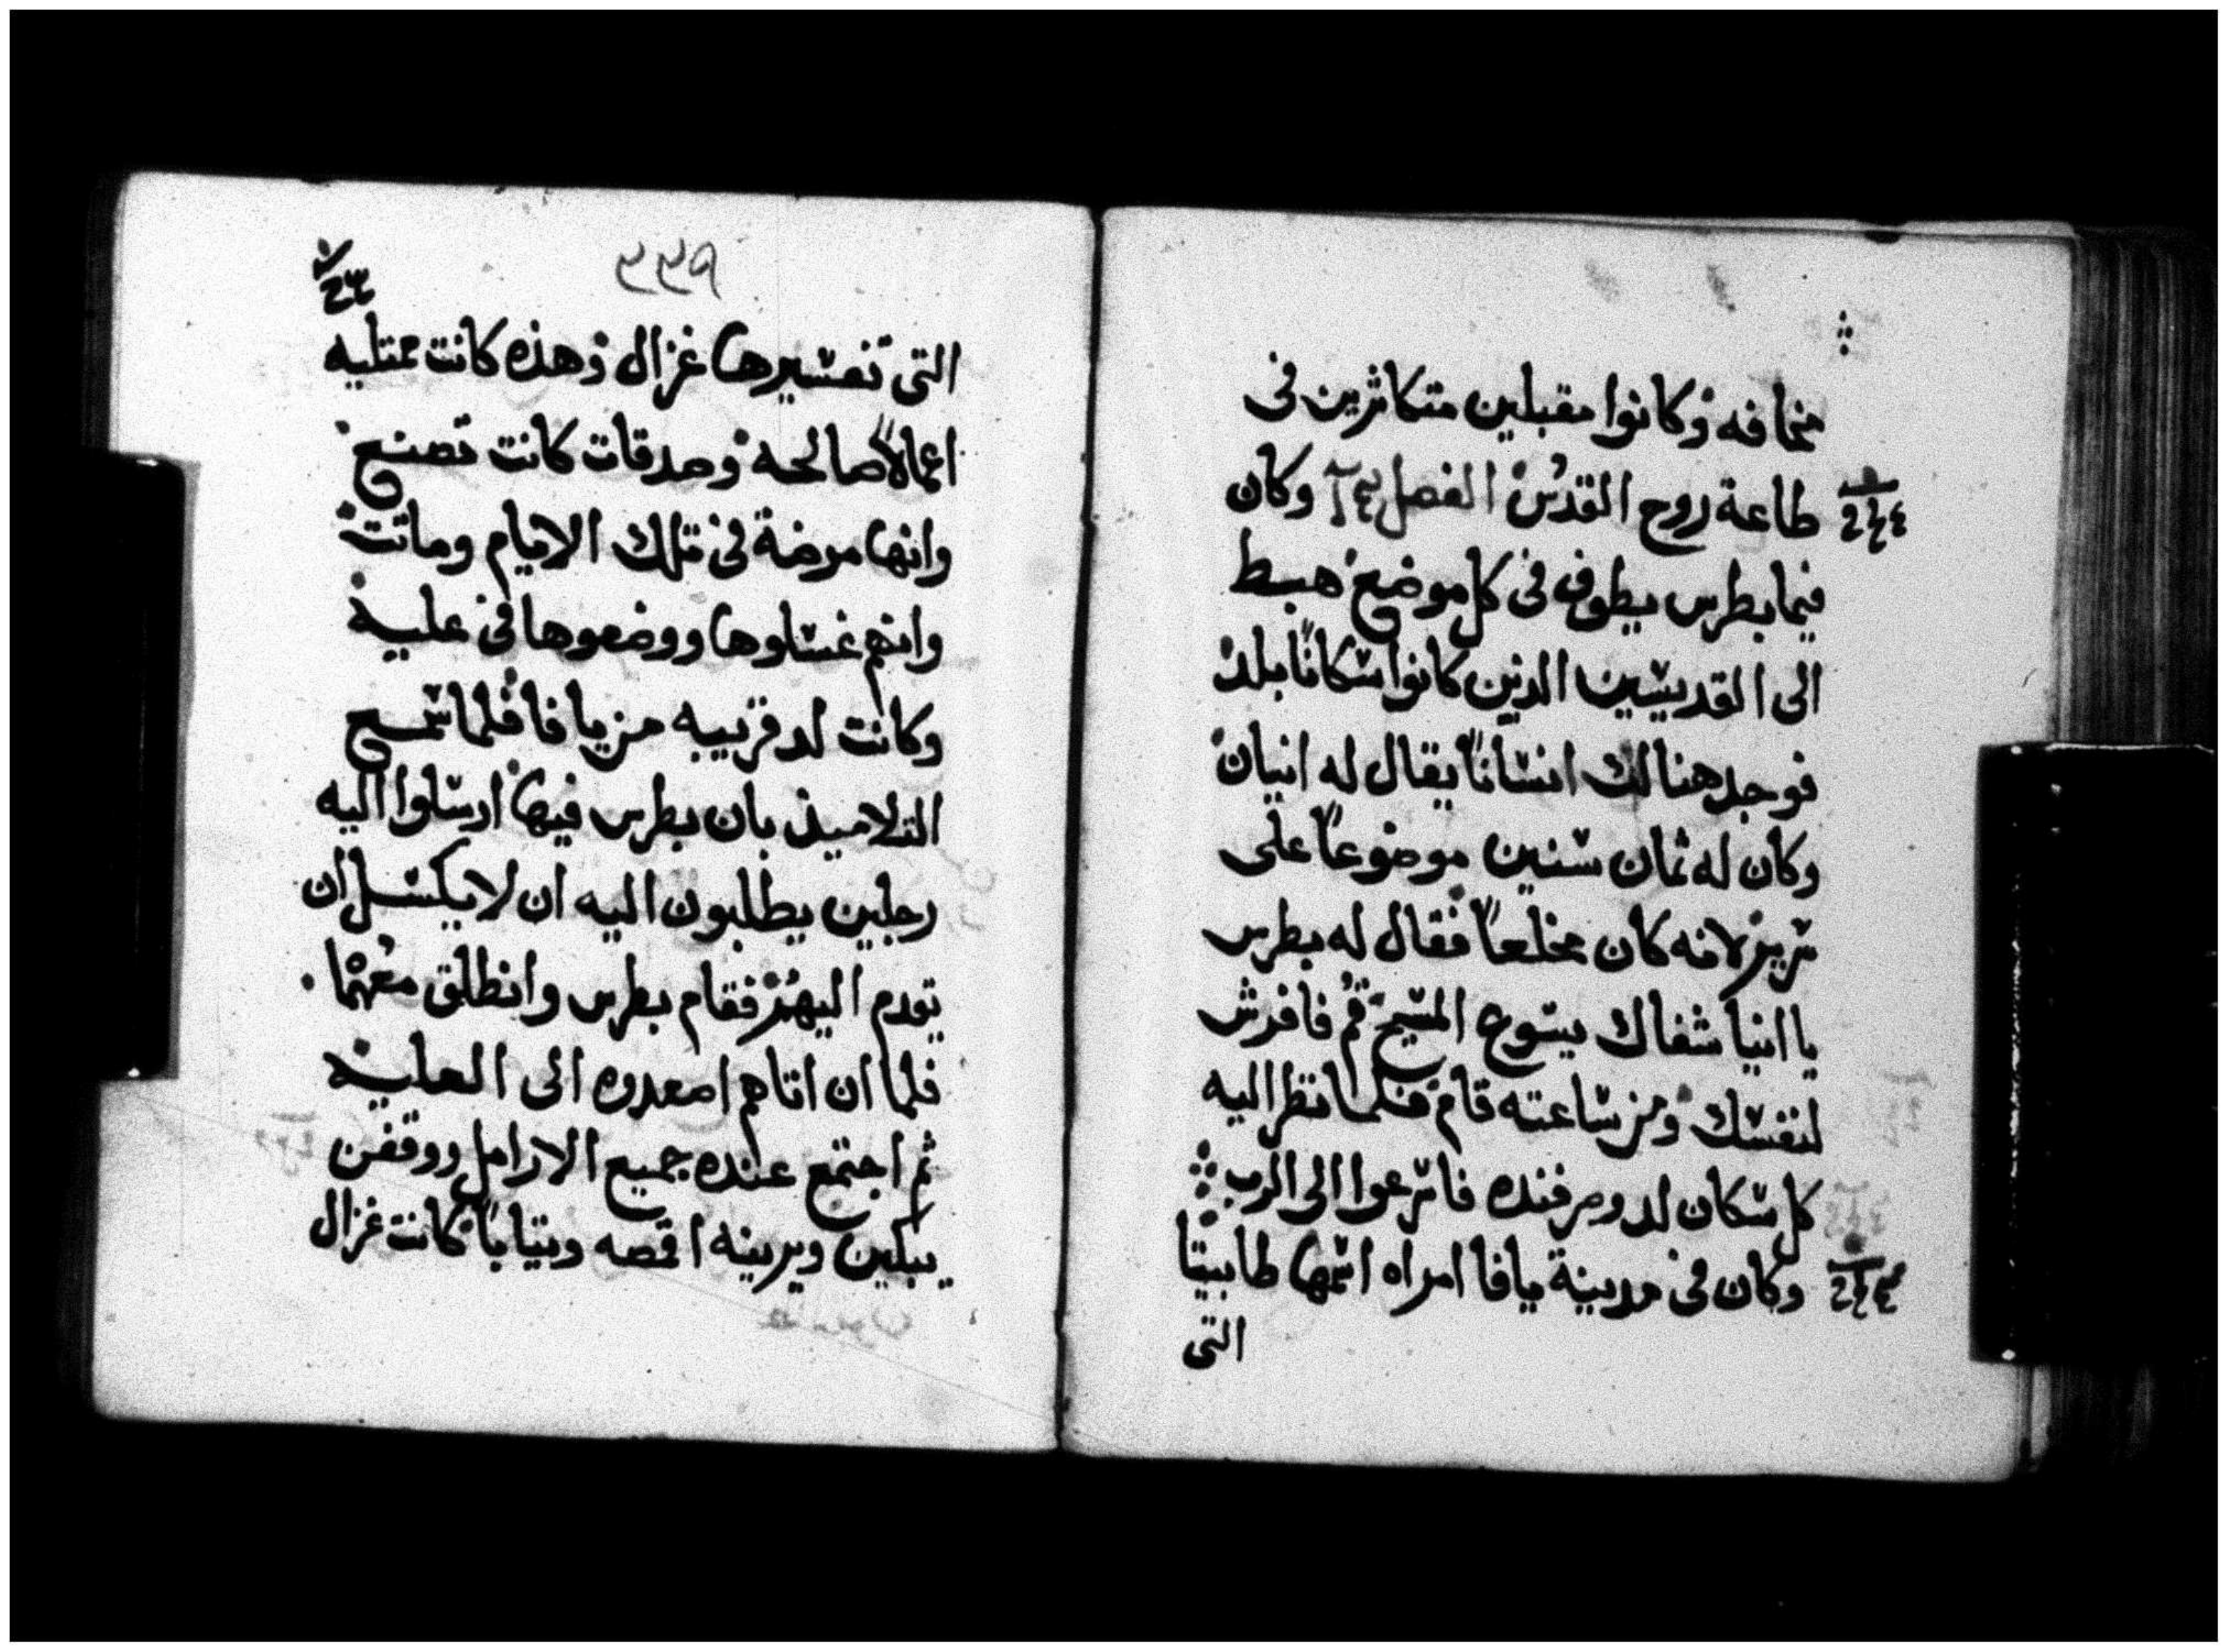 مخافه وكانوا مقبلين متكاثرين فى
طاعة روح القدس الفصل وكان
فيما بطرس يطوف فى كل موضع هبط
الى القديسين الدين كانوا سكانًا بلد
فوجد هنالك انسانًا يقال له انيان
وكان له ثمان سنين موضوعًا على
سرير لانه كان مخلعًا فقال له بطرس
يا انيا شفاك يسوع المسيح قُم فافرش
لنفسك ومن ساعته قام فلما نظر اليه
كل سكان لد ومرفنده فاسرعوا الى الرب
وكان فى مدينة يافا امراه اسمها طابيتا
التى
٢٢٩
التى تفسيرها غزال وهذه كانت ممتليه
اعمالاً صالحه وصدقات كانت تصنع
وانها مرضة فى تلك الايام وماتت
وانهم غسلوها ووضعوها فى عليه
وكانت لد قريبه من يافا فلما سمع
التلاميذ بان بطرس فيها ارسلوا اليه
رجلين يطلبون اليه ان لا يكسل ان
يقدم اليهم فقام بطرس وانطلق معهما
فلما ان اتاهم اصعدوه الى العليه
ثم اجتمع عنده جميع الارامل ووقفن
يبكين ويرينه اقمصه وثيابًا كانت غزال